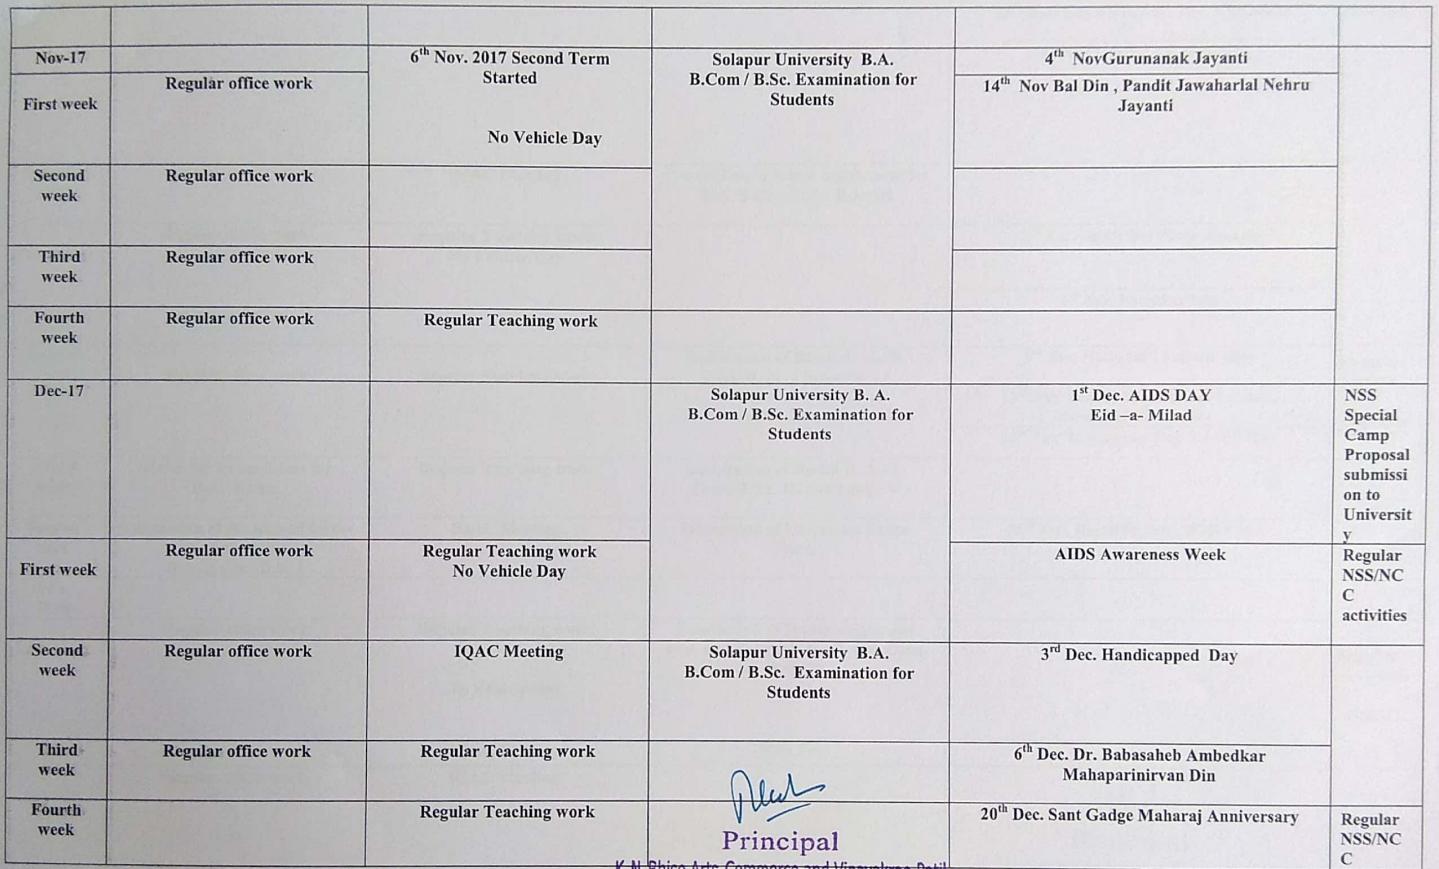 Nov-17
6th Nov. 2017 Second Term
Started
No Vehicle Day
Solapur University B.A.
B.Com / B.Sc. Examination for
Students
4th NovGurunanak Jayanti
First week
Regular office work
14th Nov Bal Din , Pandit Jawaharlal Nehru
Jayanti
Second
week
Regular office work
Third
week
Regular office work
Fourth
week
Regular office work
Regular Teaching work
Dec-17
Solapur University B. A.
B.Com / B.Sc. Examination for
Students
1st Dec. AIDS DAY
Eid –a- Milad
NSS
Special
Camp
Proposal
submissi
on to
Universit
y
First week
Regular office work
Regular Teaching work
No Vehicle Day
AIDS Awareness Week
Regular
NSS/NC
C
activities
Second
week
Regular office work
IQAC Meeting
Solapur University B.A.
B.Com / B.Sc. Examination for
Students
3rd Dec. Handicapped Day
Third
week
Regular office work
Regular Teaching work
6th Dec. Dr. Babasaheb Ambedkar
Mahaparinirvan Din
Fourth
week
Regular Teaching work
Principal
20th Dec. Sant Gadge Maharaj Anniversary
Regular
NSS/NC
C